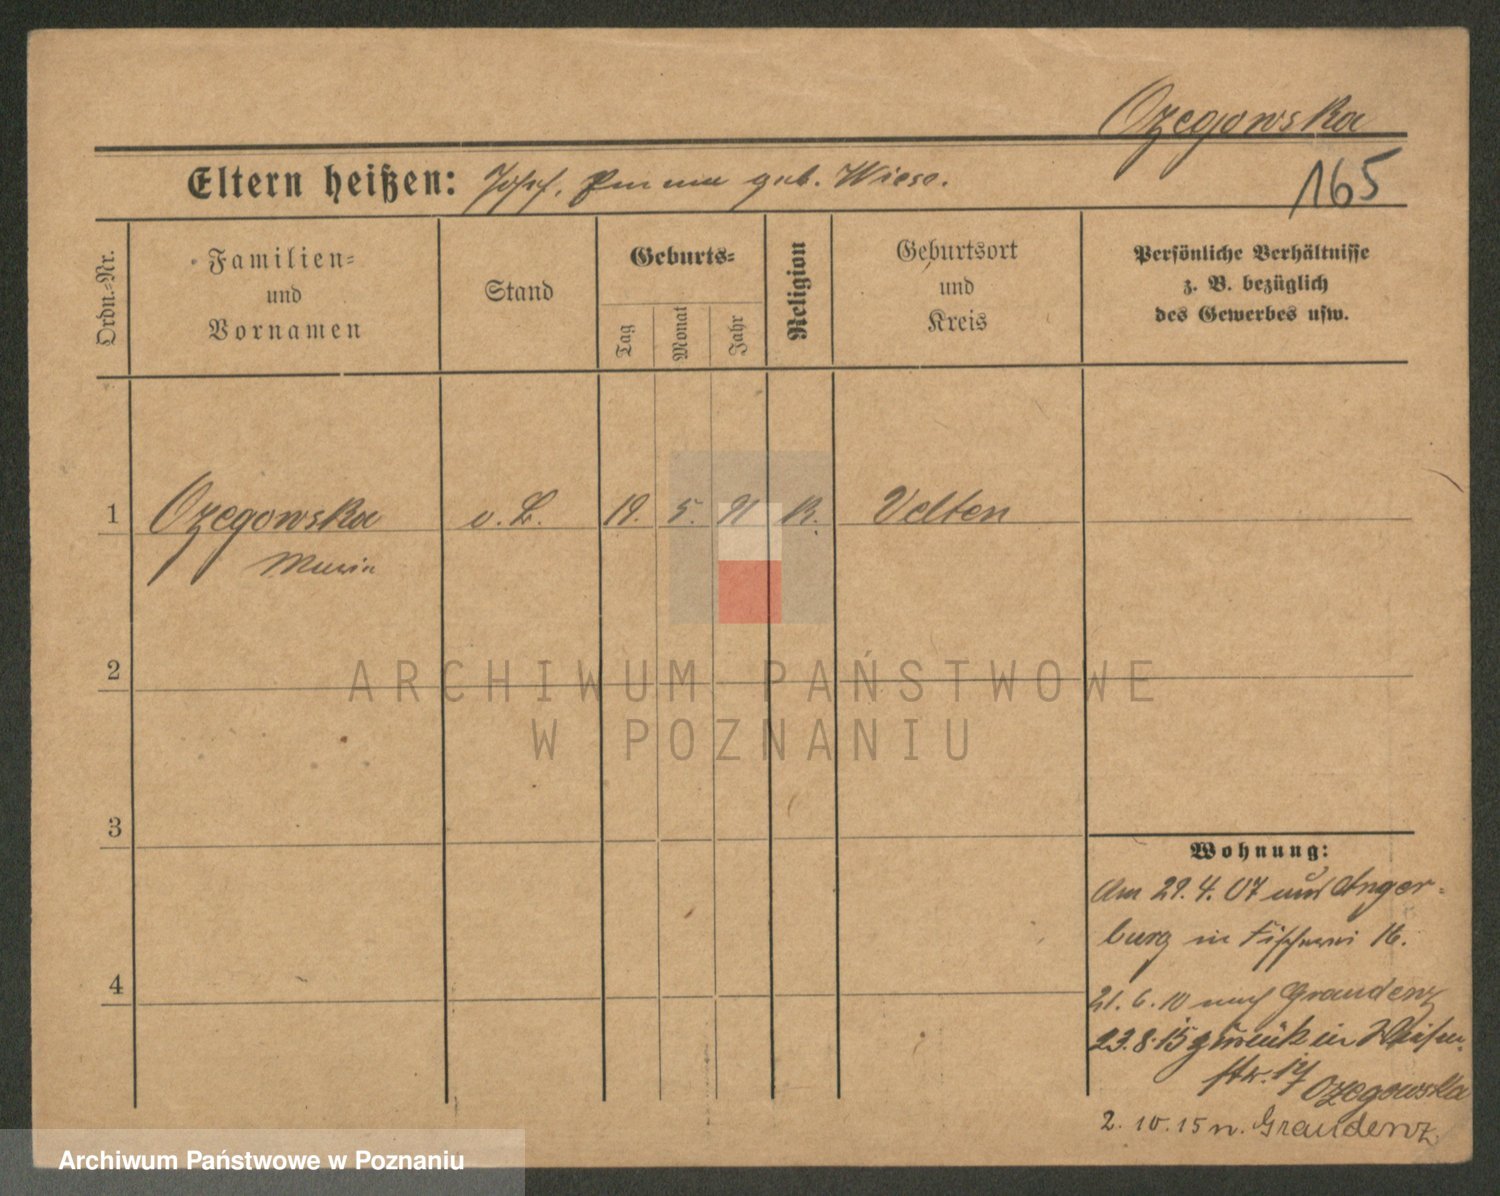 Ozegowska
165
Eltern heißen: Josef, geb. Wiese.
Ordn.-Nr.
Familien-
und
Vornamen
Stand
Geburts-
Tag
Monat
Jahr
Religion
Geburtsort
und
Kreis
Persönliche Verhältnisse
z. B. bezüglich
des Gewerbes usw.
1 Ozegowska o. B. 19. 5. 91 K. Velten
Maria
2
ARCHIWUM PAŃSTWOWE
W POZNANIU
3
4
Wohnung:
Am 29. 4. 07 Anger-
burg in Fischerei 16.
21. 6. 10 nach Graudenz
23.8.15 zurück in
str. 17 Ozegowska
2. 10. 15 n. Graudenz
Archiwum Państwowe w Poznaniu